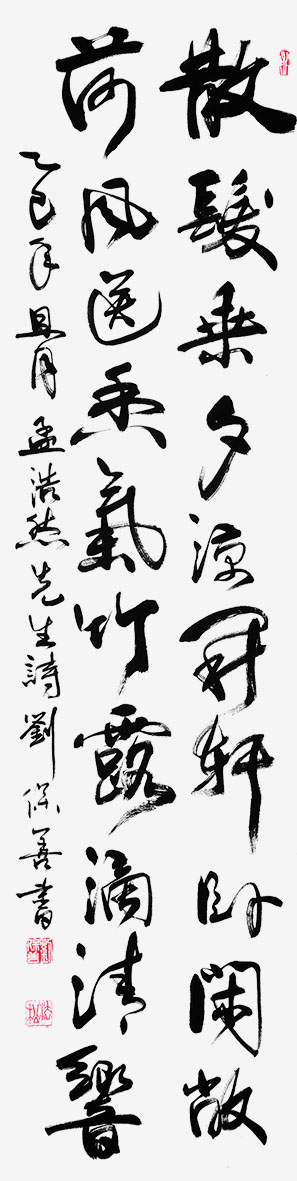 散髮乘夕涼開軒卧閑敞
荷風送香氣竹露滴清響
乙巳年且月孟浩然先生詩劉保善書